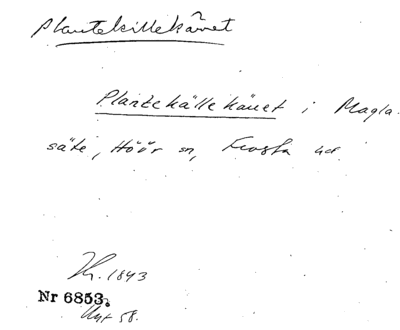 Plantekillekärret
Plantekällekäuet i Magla-
säte, Höör sn, Frosta hd.
Th. 1843
Nr 6853.
Nyt 58.